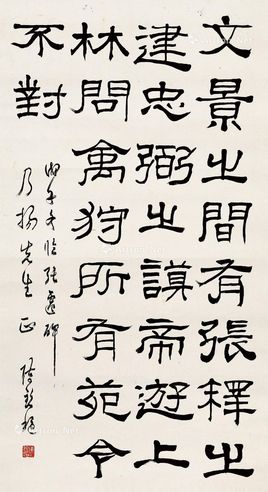 文景之間有張釋之
建忠弼之謨帝遊上
林問禽狩所有苑令
不對
丙子冬臨張遷碑
乃揚先生正